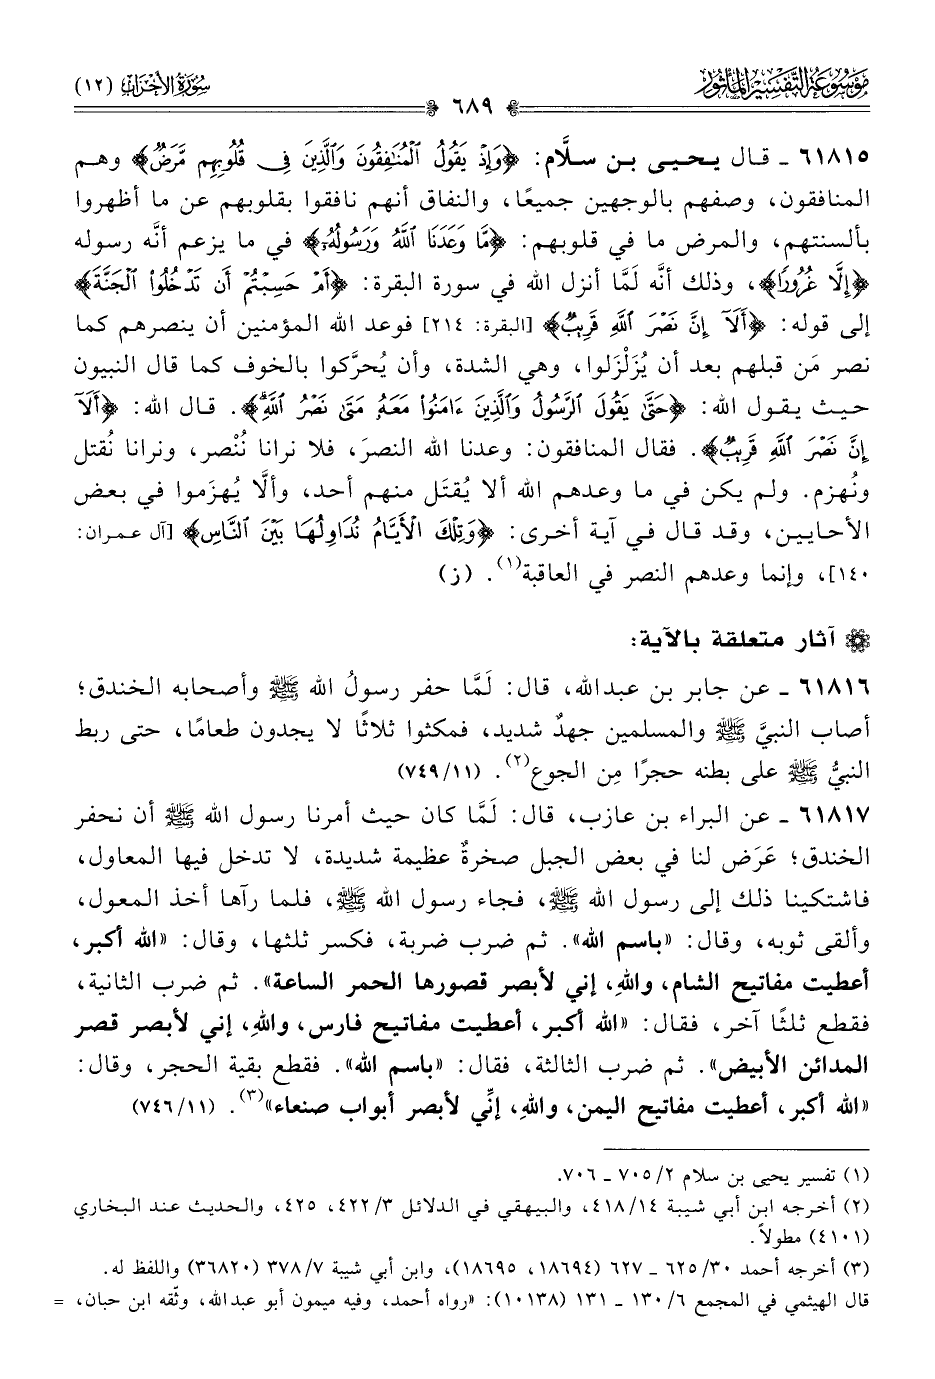 موسوعة التفسير المأثور
سورة الأحزاب (١٢)
٦٨٩
٦١٨١٥ ـ قال يحيى بن سلَّام: ﴿وَإِذْ يَقُولُ الْمُنَافِقُونَ وَالَّذِينَ فِي قُلُوبِهِم مَّرَضٌ﴾ وهم
المنافقون، وصفهم بالوجهين جميعًا، والنفاق أنهم نافقوا بقلوبهم عن ما أظهروا
بألسنتهم، والمرض ما في قلوبهم: ﴿مَّا وَعَدَنَا اللَّهُ وَرَسُولُهُ﴾ في ما يزعم أنَّه رسوله
﴿إِلَّا غُرُورًا﴾، وذلك أنَّه لَمَّا أنزل الله في سورة البقرة: ﴿أَمْ حَسِبْتُمْ أَن تَدْخُلُوا الْجَنَّةَ﴾
إلى قوله: ﴿أَلَا إِنَّ نَصْرَ اللَّهِ قَرِيبٌ﴾ [البقرة: ٢١٤] فوعد الله المؤمنين أن ينصرهم كما
نصر مَن قبلهم بعد أن يُزَلْزَلوا، وهي الشدة، وأن يُحرَّكوا بالخوف كما قال النبيون
حيث يقول الله: ﴿حَتَّى يَقُولَ الرَّسُولُ وَالَّذِينَ ءَامَنُوا مَعَهُ مَتَى نَصْرُ اللَّهِ﴾. قال الله: ﴿أَلَا
إِنَّ نَصْرَ اللَّهِ قَرِيبٌ﴾. فقال المنافقون: وعدنا الله النصرَ، فلا نرانا نُنْصر، ونرانا نُقتل
ونُهزم. ولم يكن في ما وعدهم الله ألا يُقتَل منهم أحد، وألَّا يُهزَموا في بعض
الأحايين، وقد قال في آية أخرى: ﴿وَتِلْكَ الْأَيَّامُ نُدَاوِلُهَا بَيْنَ النَّاسِ﴾ [آل عمران:
١٤٠]، وإنما وعدهم النصر في العاقبة(١). (ز)
آثار متعلقة بالآية:
٦١٨١٦ ـ عن جابر بن عبدالله، قال: لَمَّا حفر رسولُ الله ﷺ وأصحابه الخندق؛
أصاب النبيَّ ﷺ والمسلمين جهدٌ شديد، فمكثوا ثلاثًا لا يجدون طعامًا، حتى ربط
النبيُّ ﷺ على بطنه حجرًا مِن الجوع(٢). (٧٤٩/١١)
٦١٨١٧ ـ عن البراء بن عازب، قال: لَمَّا كان حيث أمرنا رسول الله ﷺ أن نحفر
الخندق؛ عَرَض لنا في بعض الجبل صخرةٌ عظيمة شديدة، لا تدخل فيها المعاول،
فاشتكينا ذلك إلى رسول الله ﷺ، فجاء رسول الله ﷺ، فلما رآها أخذ المعول،
وألقى ثوبه، وقال: «باسم الله». ثم ضرب ضربة، فكسر ثلثها، وقال: «الله أكبر،
أعطيت مفاتيح الشام، واللهِ، إني لأبصر قصورها الحمر الساعة». ثم ضرب الثانية،
فقطع ثلثًا آخر، فقال: «الله أكبر، أعطيت مفاتيح فارس، واللهِ، إني لأبصر قصر
المدائن الأبيض». ثم ضرب الثالثة، فقال: «باسم الله». فقطع بقية الحجر، وقال:
«الله أكبر، أعطيت مفاتيح اليمن، واللهِ، إنِّي لأبصر أبواب صنعاء»(٣). (٧٤٦/١١)
(١) تفسير يحيى بن سلام ٧٠٥/٢ ـ ٧٠٦.
(٢) أخرجه ابن أبي شيبة ٤١٨/١٤، والبيهقي في الدلائل ٤٢٢/٣، ٤٢٥، والحديث عند البخاري
(٤١٠١) مطولاً.
(٣) أخرجه أحمد ٦٢٥/٣٠ ـ ٦٢٧ (١٨٦٩٤، ١٨٦٩٥)، وابن أبي شيبة ٣٧٨/٧ (٣٦٨٢٠) واللفظ له.
قال الهيثمي في المجمع ١٣٠/٦ ـ ١٣١ (١٠١٣٨): «رواه أحمد، وفيه ميمون أبو عبدالله، وثّقه ابن حبان، =